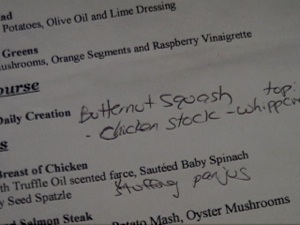 ad
Potatoes, Olive Oil and Lime Dressing
Greens
ushrooms, Orange Segments and Raspberry Vinaigrette
ourse
Daily Creation Butternut Squash top:
- Chicken Stock - whipped
s
Breast of Chicken
th Truffle Oil scented farce, Sautéed Baby Spinach
y Seed Spatzle stuffing
ed Salmon Steak
Potato Mash, Oyster Mushrooms